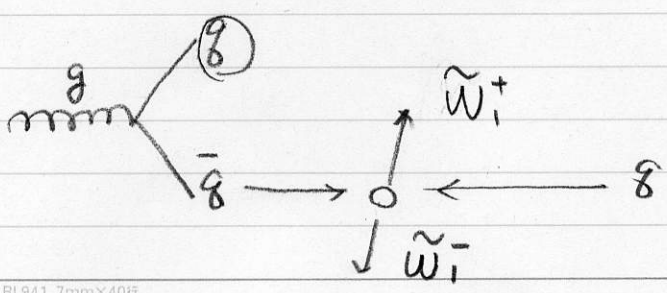 q
g
W̃₁⁺
q̄
q
W̃₁⁻
RL941 7mm×40行